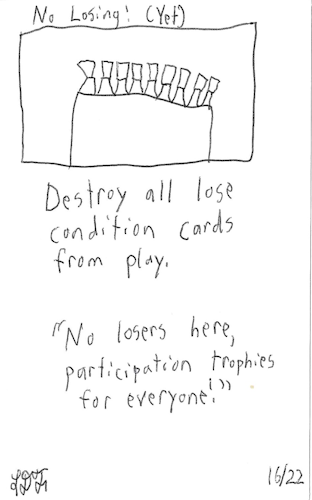 No Losing! (Yet)
Destroy all lose
condition cards
from play.
"No losers here,
participation trophies
for everyone!"
16/22